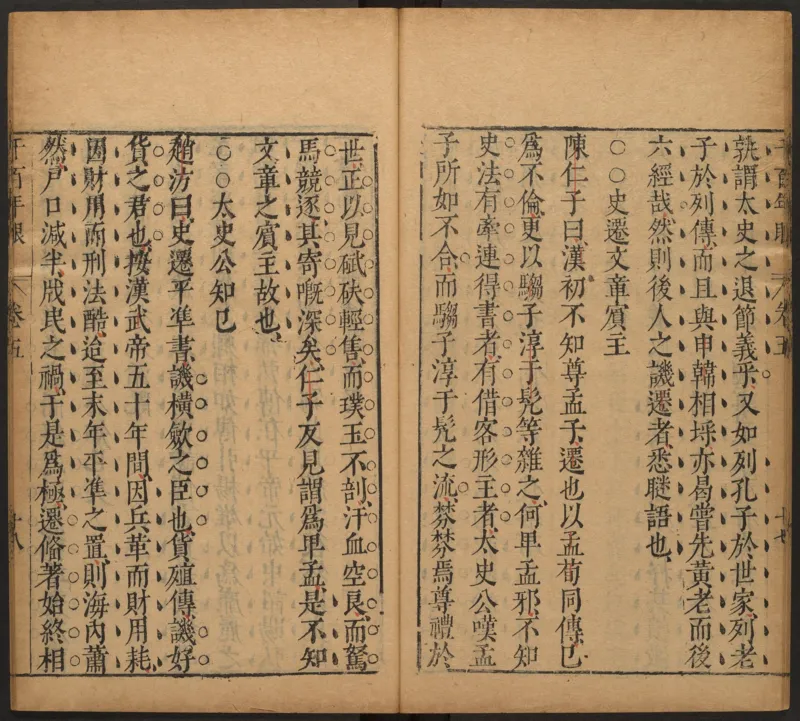 孰謂太史之退節義乎又如列孔子於世家列老
子於列傳而且與申韓相埒亦曷嘗先黃老而後
六經哉然則後人之譏遷者悉𥈭語也
○○史遷文章賓主
陳仁子曰漢初不知尊孟子遷也以孟荀同傳已
爲不倫更以騶子淳于髡等雜之何卑孟邪不知
史法有牽連得書者有借客形主者太史公嘆孟
子所如不合而騶子淳于髡之流棼棼焉尊禮於
世正以見碔砆輕售而璞玉不剖汗血空良而駑
馬競逐其寄嘅深矣仁子反見謂爲卑孟是不知
文章之賓主故也
○○太史公知己
趙汸曰史遷平準書譏橫歛之臣也貨殖傳譏好
貨之君也按漢武帝五十年間因兵革而財用耗
因財用而刑法酷迨至末年平準之置則海內蕭
然戶口減半戕民之禍于是爲極遷俻著始終相
千百年眼 卷五 十八